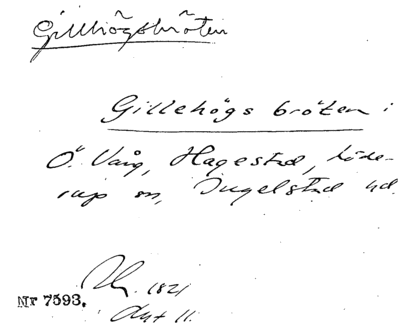 Gillhögsbröten
Gillehögs bröten i
Ö. Vång, Hagestad, Löde-
rup sn, Ingelstad hd.
1821
Akt 11.
Nr 7593.